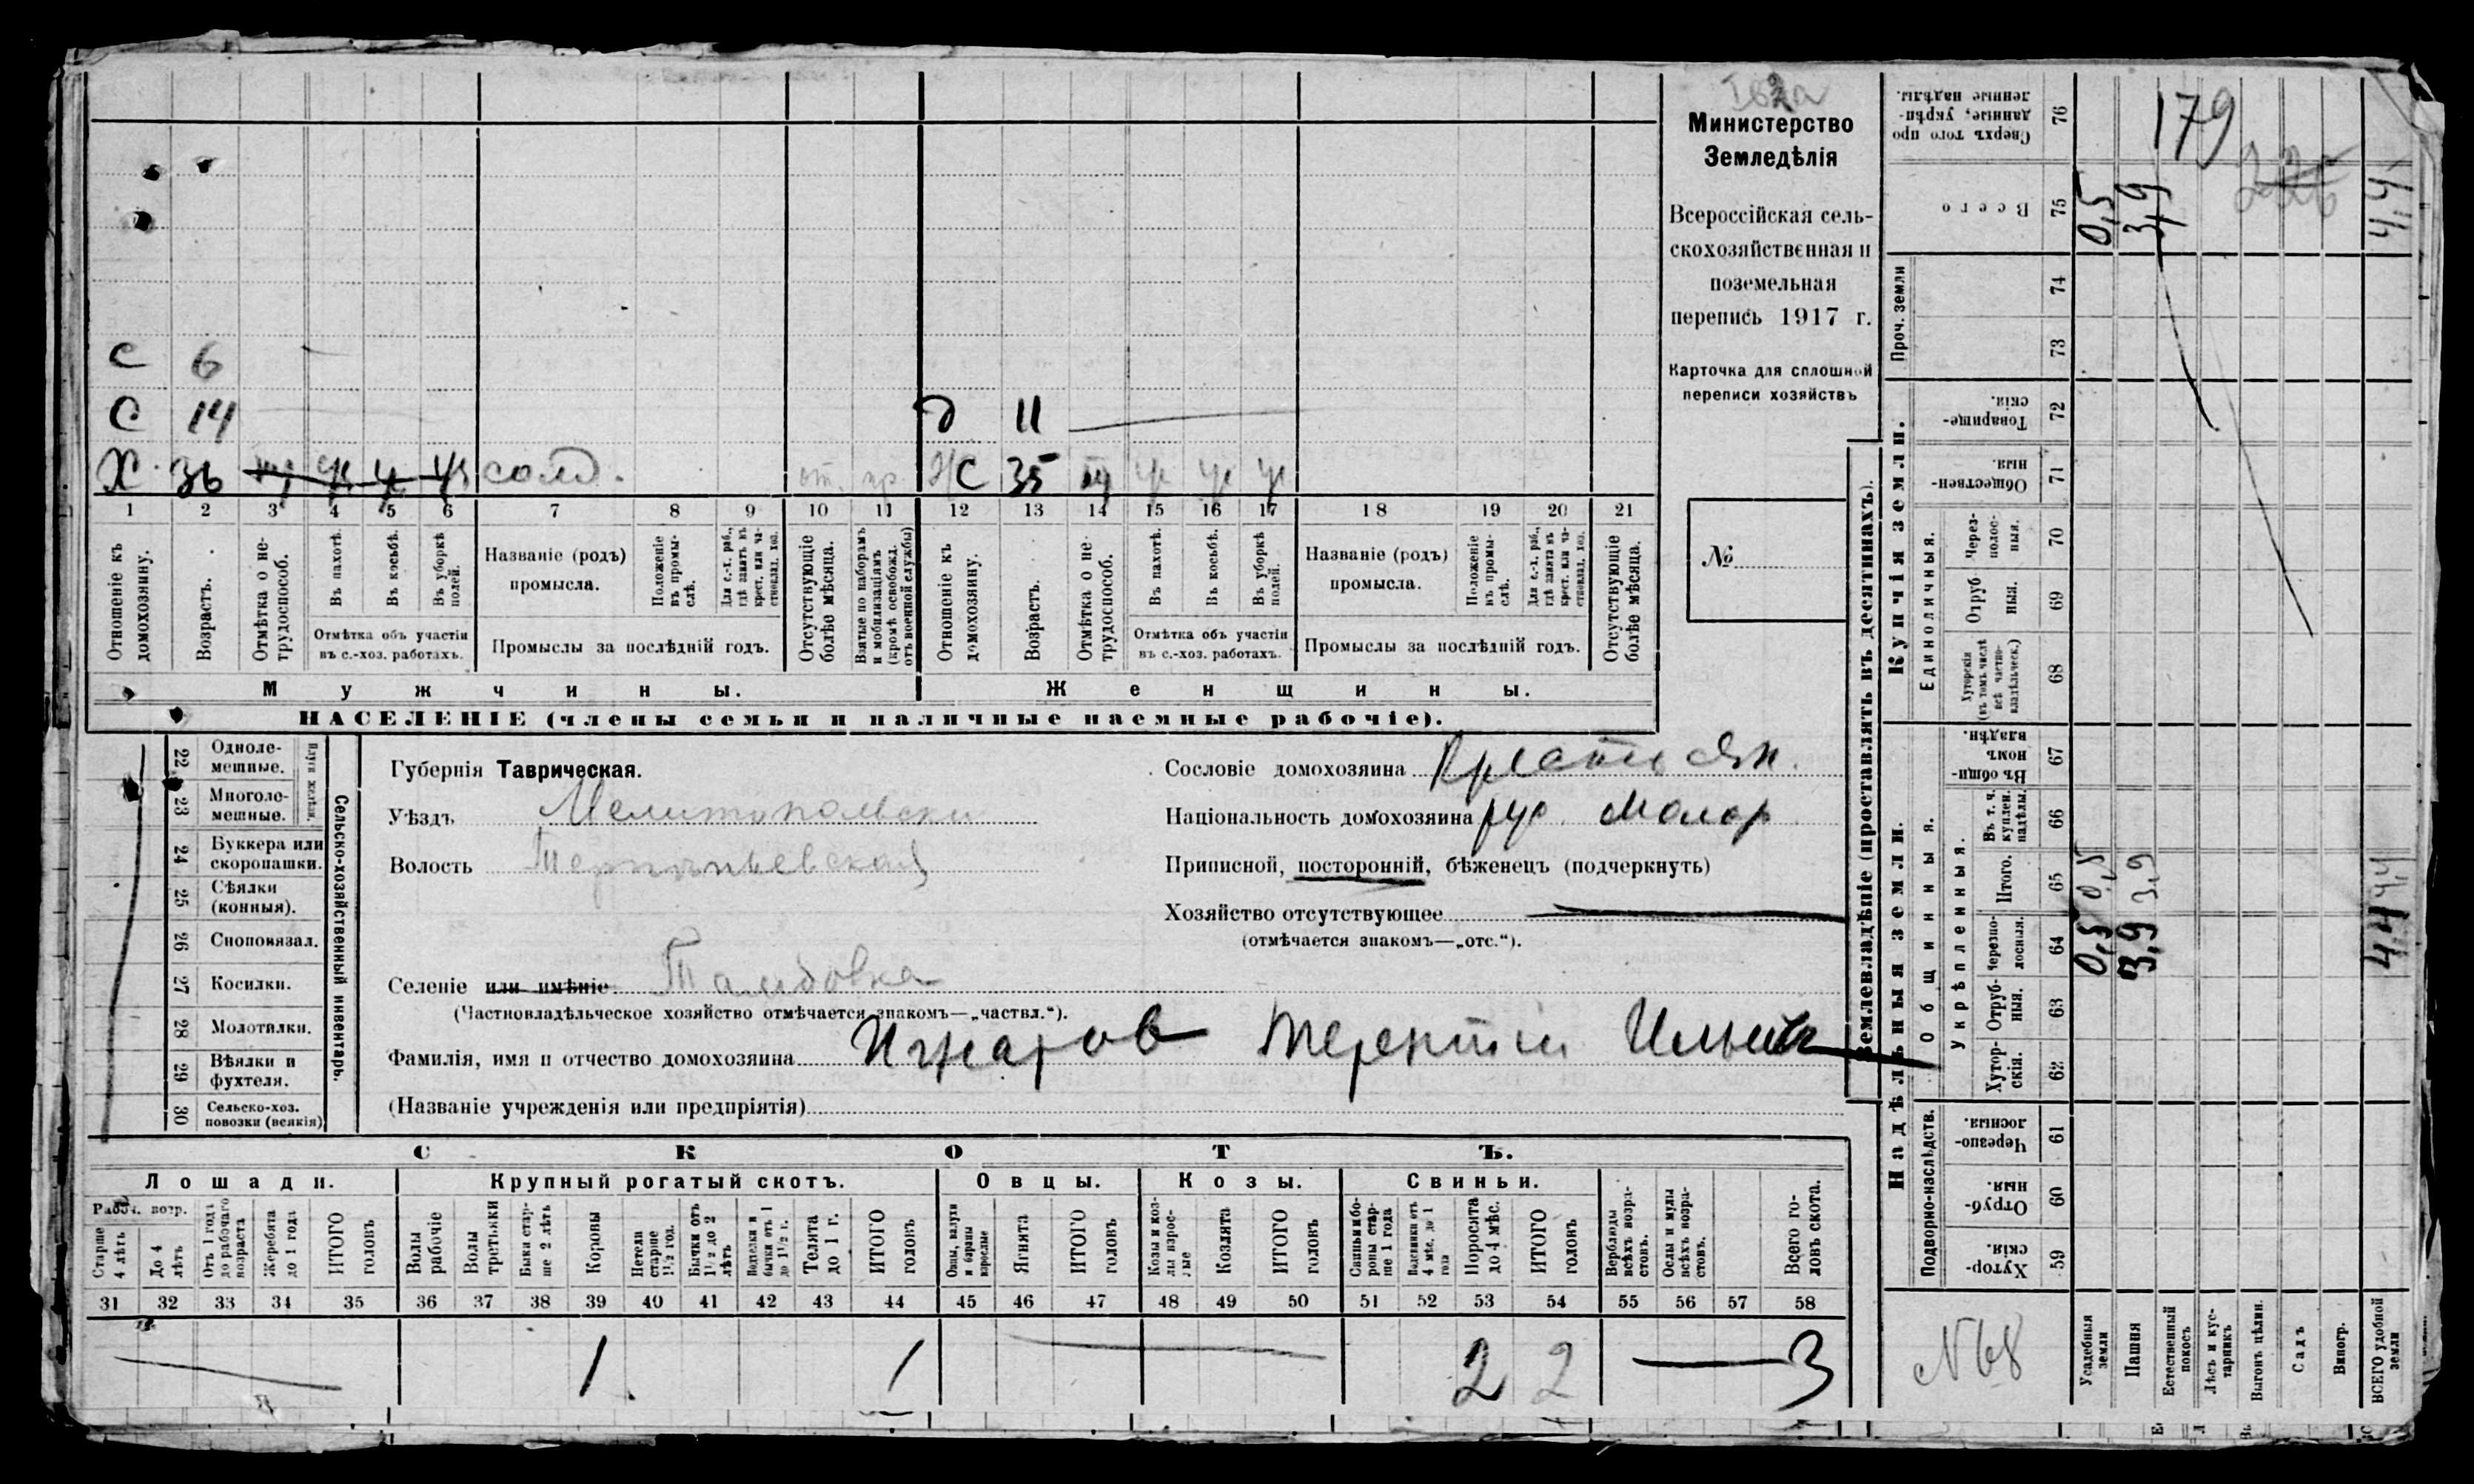 Министерство
Земледѣлія
Всероссійская сель-
скохозяйственная и
поземельная
перепись 1917 г.
Карточка для сплошной
переписи хозяйствъ
№
С 6
С 14 д 11
Х 36 солд. ж 35
1 2 3 4 5 6 7 8 9 10 11 12 13 14 15 16 17 18 19 20 21
Отношеніе къ домохозяину.
Возрастъ.
Отмѣтка о не-трудоспособ.
Въ пахотѣ.
Въ косьбѣ.
Въ уборкѣ полей.
Отмѣтка объ участіи
въ с.-хоз. работахъ.
Названіе (родъ)
промысла.
Положеніе въ промы-слѣ.
Для с.-х. раб., гдѣ занятъ въ крест. или ча-стновлад. хоз.
Промыслы за послѣдній годъ.
Отсутствующіе болѣе мѣсяца.
Взятые по наборамъ и мобилизаціямъ (кромѣ освобожд. отъ военной службы)
Отношеніе къ домохозяину.
Возрастъ.
Отмѣтка о не-трудоспособ.
Въ пахотѣ.
Въ косьбѣ.
Въ уборкѣ полей.
Отмѣтка объ участіи
въ с.-хоз. работахъ.
Названіе (родъ)
промысла.
Положеніе въ промы-слѣ.
Для с.-х. раб., гдѣ занята въ крест. или ча-стновлад. хоз.
Промыслы за послѣдній годъ.
Отсутствующіе болѣе мѣсяца.
Мужчины. Женщины.
НАСЕЛЕНІЕ (члены семьи и наличные наемные рабочіе).
Сельско-хозяйственный инвентарь.
Плуги желѣзн.
22 Одноле-мешные.
23 Многоле-мешные.
24 Буккера или скоропашки.
25 Сѣялки (конныя).
26 Сноповязал.
27 Косилки.
28 Молотилки.
29 Вѣялки и фухтеля.
30 Сельско-хоз. повозки (всякія)
Губернія Таврическая.
Уѣздъ Мелитопольски
Волость
Селеніе или имѣніе Тамбовка
(Частновладѣльческое хозяйство отмѣчается знакомъ—„частвл.“).
Сословіе домохозяина Крестьян.
Національность домохозяина рус. малор
Приписной, посторонній, бѣженецъ (подчеркнуть)
Хозяйство отсутствующее
(отмѣчается знакомъ—„отс.“).
Фамилія, имя и отчество домохозяина Терентій Ильич
(Названіе учрежденія или предпріятія)
СКОТЪ.
Лошади. Крупный рогатый скотъ. Овцы. Козы. Свиньи.
Рабоч. возр.
Старше 4 лѣтъ
До 4 лѣтъ
Отъ 1 года до рабочаго возраста
Жеребята до 1 года
ИТОГО головъ
Волы рабочіе
Волы третьяки
Быки стар-ше 2 лѣтъ
Коровы
Нетели старше 1½ год.
Бычки отъ 1½ до 2 лѣтъ
Подтелки и бычки отъ 1 до 1½ г.
Телята до 1 г.
ИТОГО головъ
Овцы, валухи и бараны взрослые
Ягнята
ИТОГО головъ
Козы и коз-лы взрос-лые
Козлята
ИТОГО головъ
Свиньи и бо-ровы стар-ше 1 года
Подсвинки отъ 4 мѣс. до 1 года
Поросята до 4 мѣс.
ИТОГО головъ
Верблюды всѣхъ возра-стовъ.
Ослы и мулы всѣхъ возра-стовъ.
Всего го-ловъ скота.
31 32 33 34 35 36 37 38 39 40 41 42 43 44 45 46 47 48 49 50 51 52 53 54 55 56 57 58
1 1 2 2 3
Землевладѣніе (проставлять въ десятинахъ).
Купчія земли.
Надѣльныя земли.
Сверхъ того про-данные, укрѣп-ленные надѣлы. 76
Всего 75 0,5 3,9 4,4
179
226
Проч. земли 74 73
Товарище-скія. 72
Обществен-ныя. 71
Единоличныя.
Через-полос-ныя. 70
Отруб-ныя. 69
Хуторскія (въ томъ числѣ всѣ частно-владѣльческ.) 68
Общинныя.
Въ общи-номъ владѣн. 67
Укрѣпленныя.
Въ т. ч. куплен. надѣлы. 66
Итого. 65 0,5 3,9 4,4
Черезпо-лосныя. 64 0,5 3,9 4,4
Отруб-ныя. 63
Хутор-скія. 62
Подворно-наслѣдств.
Черезпо-лосныя. 61
Отруб-ныя. 60
Хутор-скія. 59
N68
Усадебныя земли
Пашня
Естественный покосъ
Лѣсъ и кус-тарникъ
Выгонъ цѣлин.
Садъ
Виногр.
ВСЕГО удобной земли